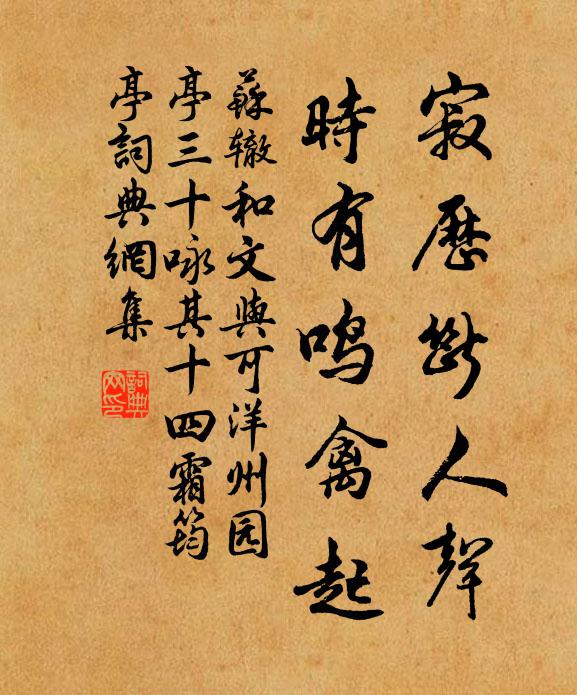 寂歷斷人聲
時有鸣禽起
蘇辙和文與可洋州园
亭三十咏其十四霜筠
亭詞典網集
詞典
网印